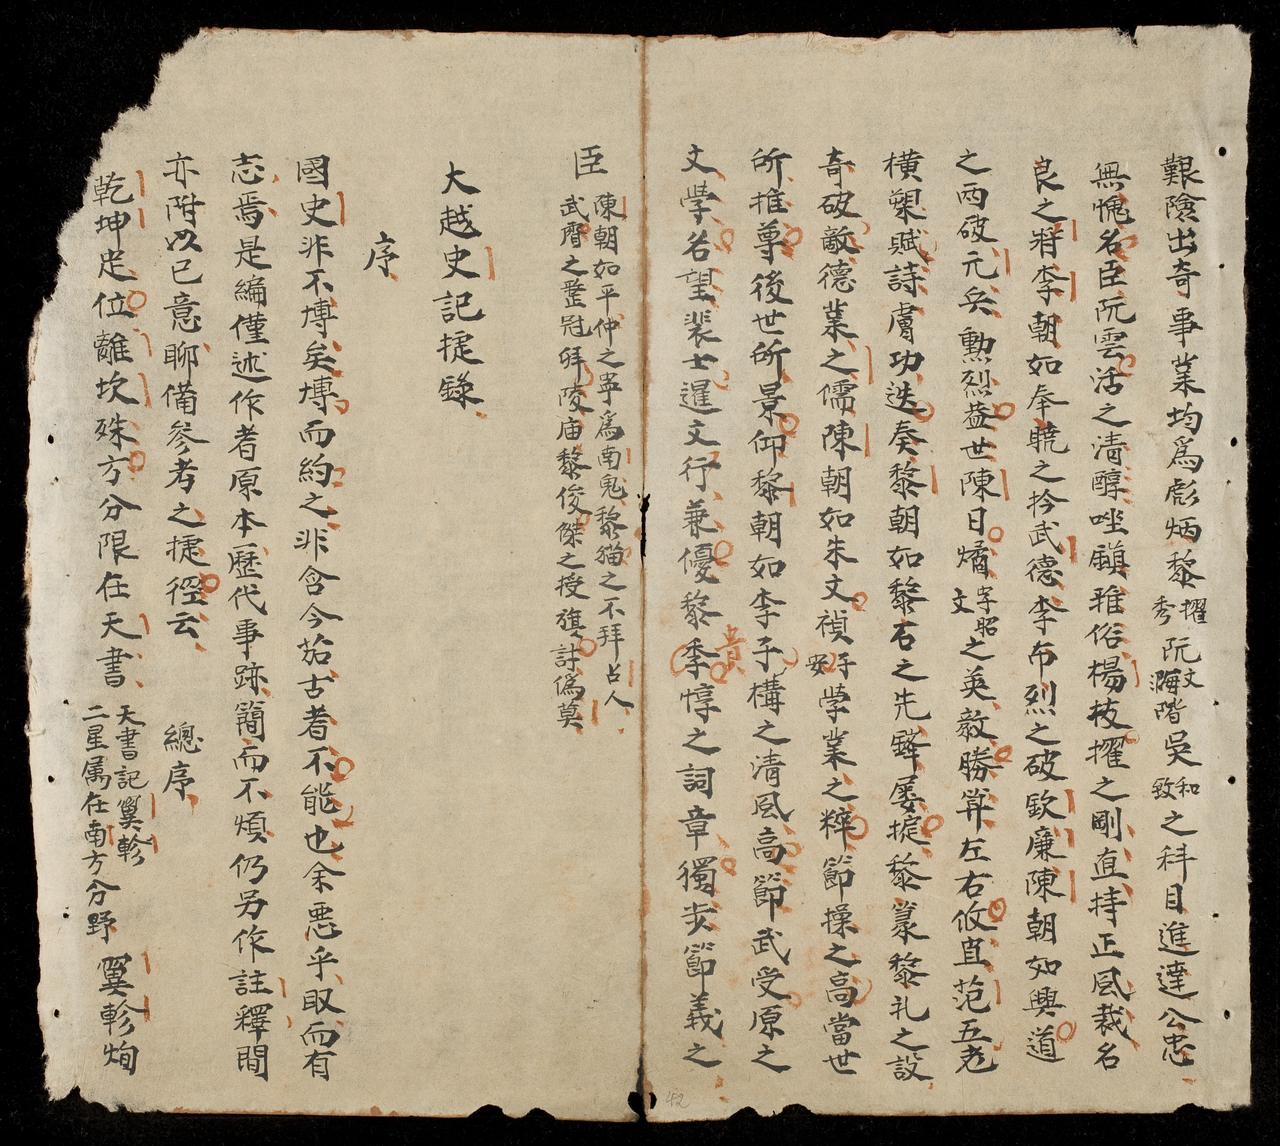 艱險出奇事業均爲彪炳黎擢秀阮文階海吳和致之科目進達公忠
無愧名臣阮雲活之清醇坐鎭雅俗楊枝擢之剛直持正風裁名
良之將李朝如奉曉之扲武德李布烈之破欽廉陳朝如興道
之两破元兵勳烈益世陳日燏字昭文之英毅勝筭左右攸直范五老
橫槊賦詩膚功迭奏黎朝如黎石之先鋒屡捷黎篆黎礼之設
奇破敵德業之儒陳朝如朱文禎字安学業之粹節操之高當世
所推尊後世所景仰黎朝如李子構之清風高節武受原之
文學名望裴士暹文行兼優黎貴惇之詞章獨步節義之
臣
陳朝如平仲之寜爲南鬼黎貓之不拜占人
武睿之整冠拜陵庙黎俊傑之授旗討偽莫
大越史記捷錄
序
國史非不博矣博而約之非含今茹古者不能也余悪乎取而有
志焉是編僅述作者原本歷代事跡簡而不煩仍另作註釋間
亦附以已意聊備參考之捷徑云 總序
乾坤定位離坎殊方分限在天書天書記翼軫二星属在南方分野翼軫炯
42